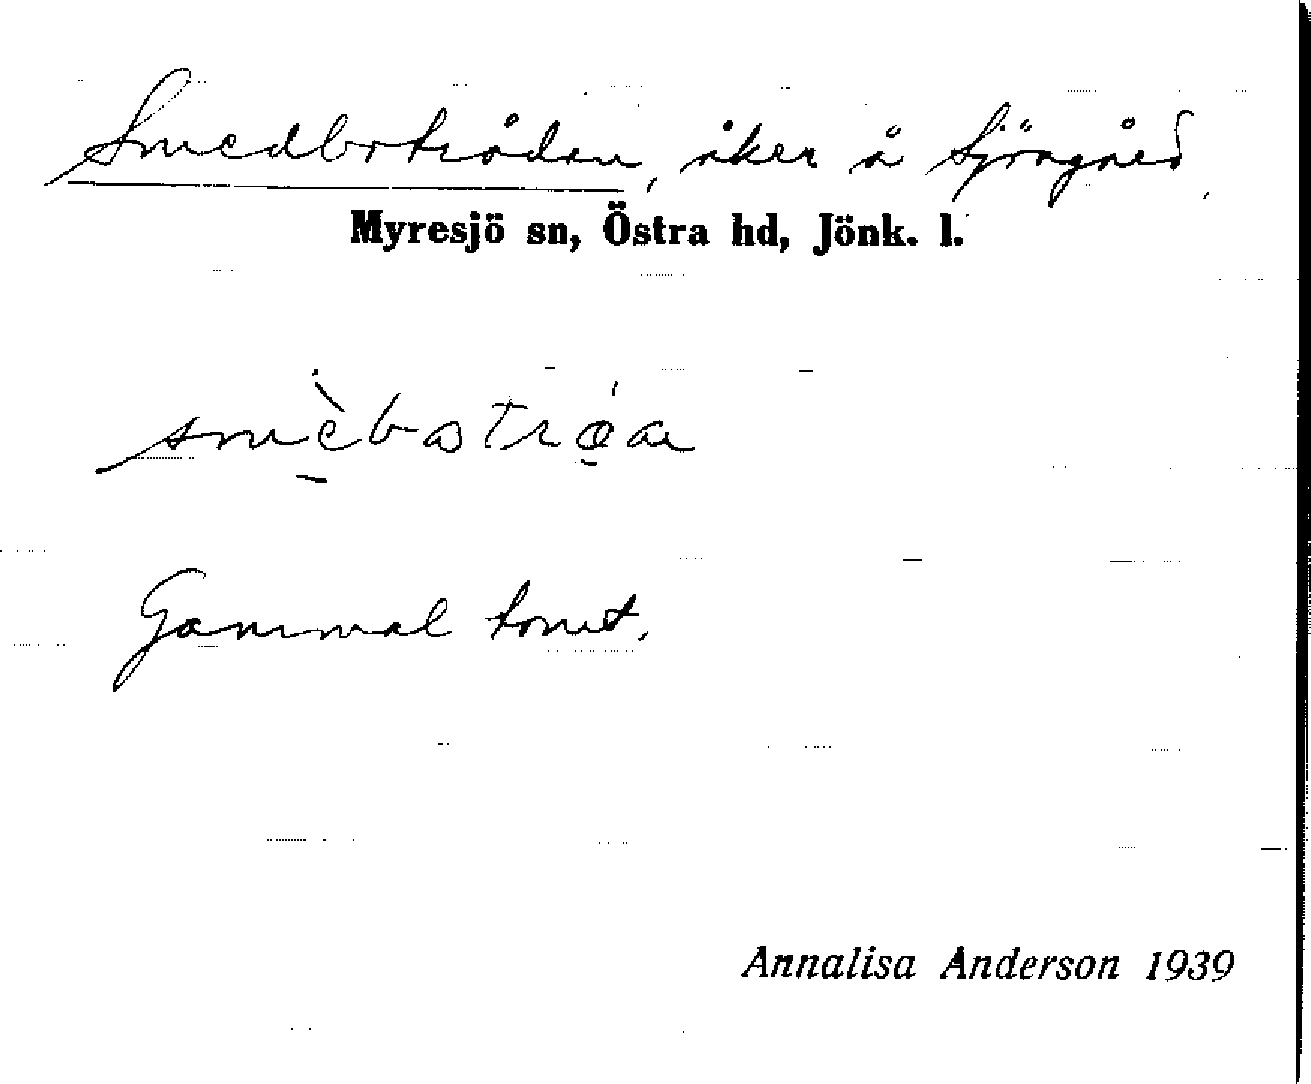 Smedbotråden, åker å Sjöagård.
Myresjö sn, Östra hd, Jönk. l.
Gammal tomt.
Annalisa Anderson 1939